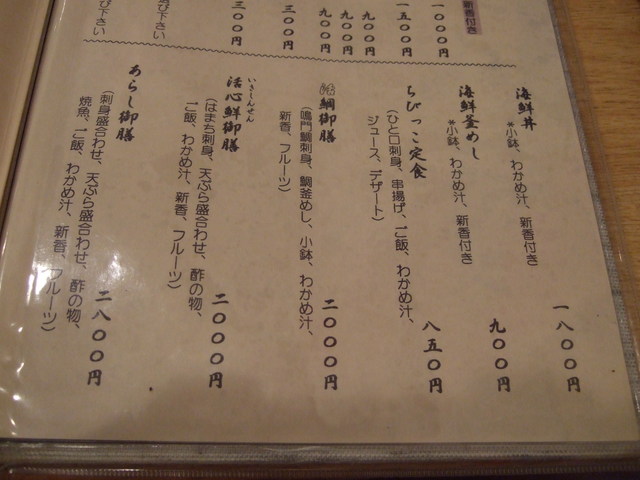 新香付き
一〇〇〇円
一五〇〇円
九〇〇円
九〇〇円
九〇〇円
三〇〇円
三〇〇円
び下さい
海鮮丼
*小鉢、わかめ汁、新香付き
一八〇〇円
海鮮釜めし
*小鉢、わかめ汁、新香付き
九〇〇円
ちびっこ定食
(ひと口刺身、串揚げ、ご飯、わかめ汁、
ジュース、デザート)
八五〇円
鯛御膳
(鳴門鯛刺身、鯛釜めし、小鉢、わかめ汁、
新香、フルーツ)
二〇〇〇円
いきしんぜん
活心鮮御膳
(はまち刺身、天ぷら盛合わせ、酢の物、
ご飯、わかめ汁、新香、フルーツ)
二〇〇〇円
あらし御膳
(刺身盛合わせ、天ぷら盛合わせ、酢の物、
焼魚、ご飯、わかめ汁、新香、フルーツ)
二八〇〇円